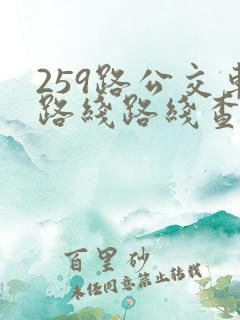 259路公交车
路线路线查
百里砂
未经同意禁止转载